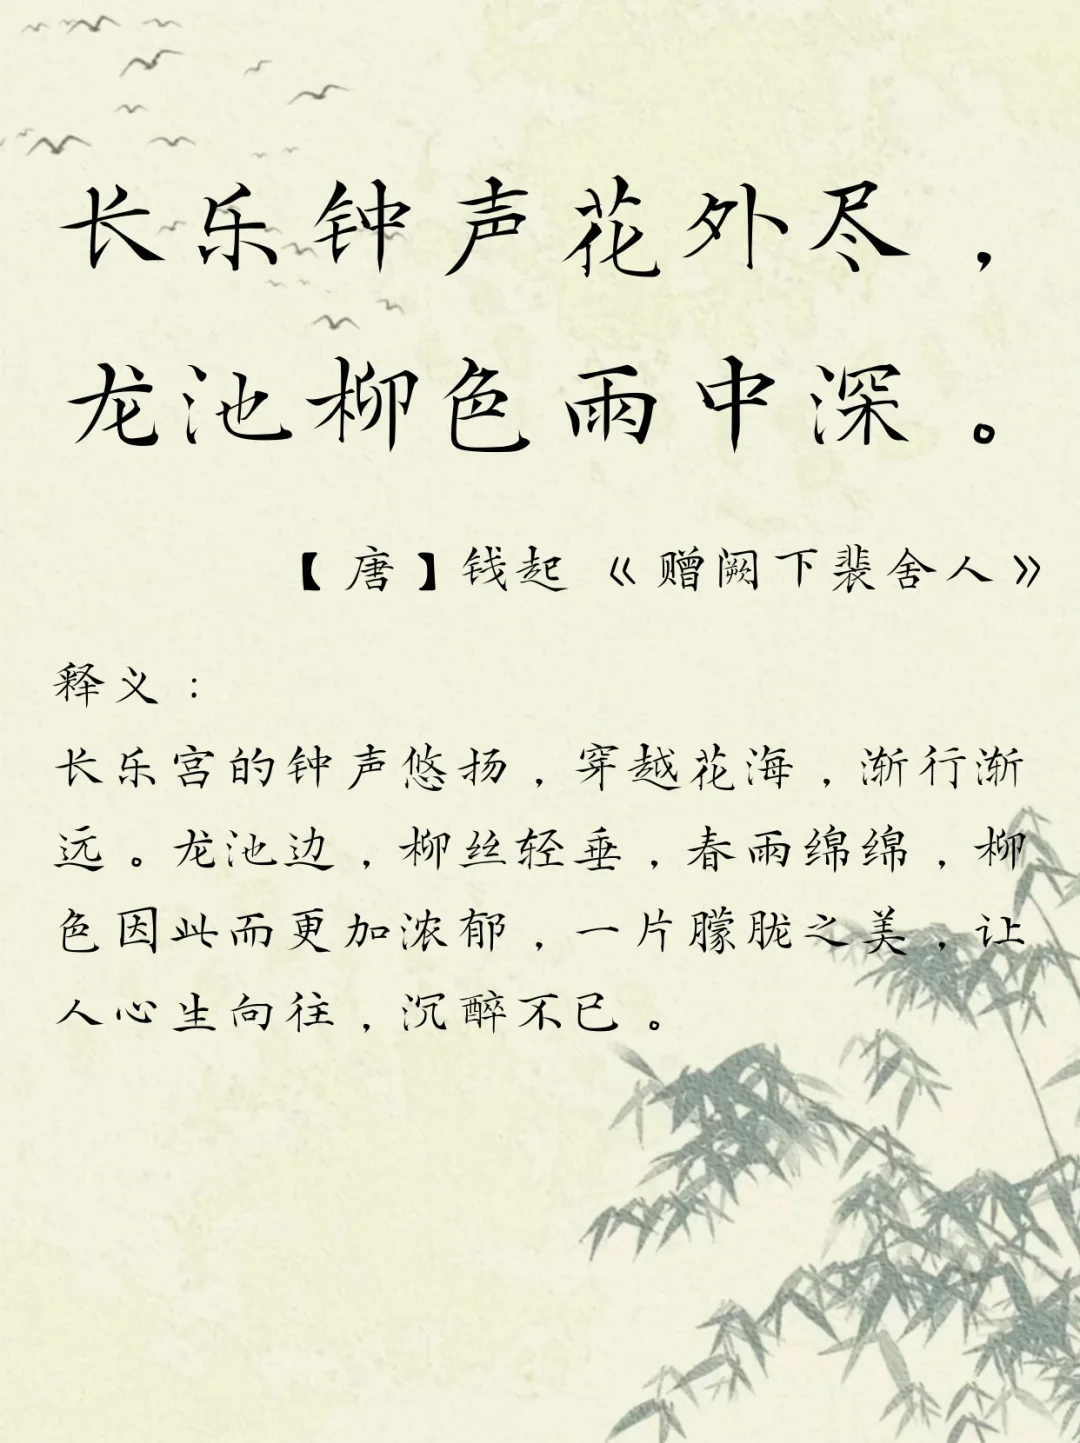 长乐钟声花外尽，
龙池柳色雨中深。
【唐】钱起《赠阙下裴舍人》
释义：
长乐宫的钟声悠扬，穿越花海，渐行渐
远。龙池边，柳丝轻垂，春雨绵绵，柳
色因此而更加浓郁，一片朦胧之美，让
人心生向往，沉醉不已。